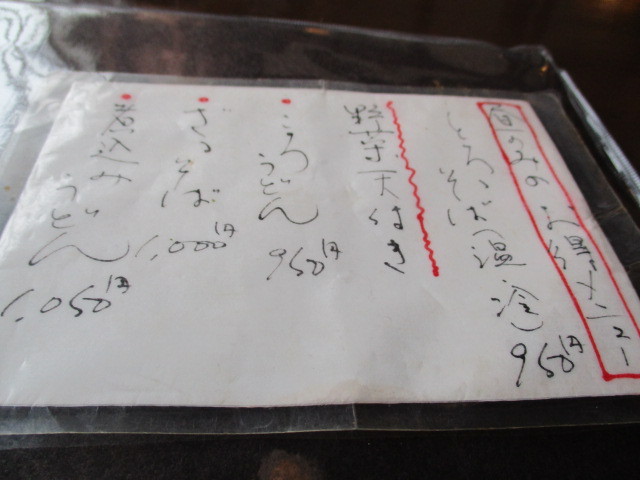 昼のみの メニュー
とろろそば(温・冷) 950円
野菜天付き
・ころうどん 950円
・ざるそば 1,000円
・煮込みうどん 1,050円